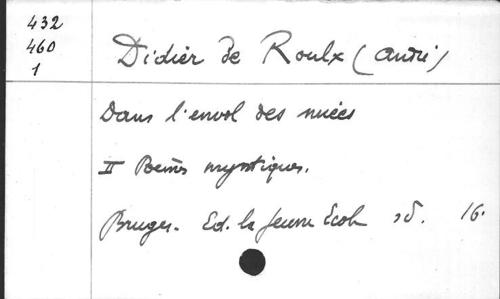 432
460
1
Didier de Roulx (André)
Dans l'envol des nuées
II Poèmes mystiques.
Bruges. Ed. la Jeune Ecole sd. 16.